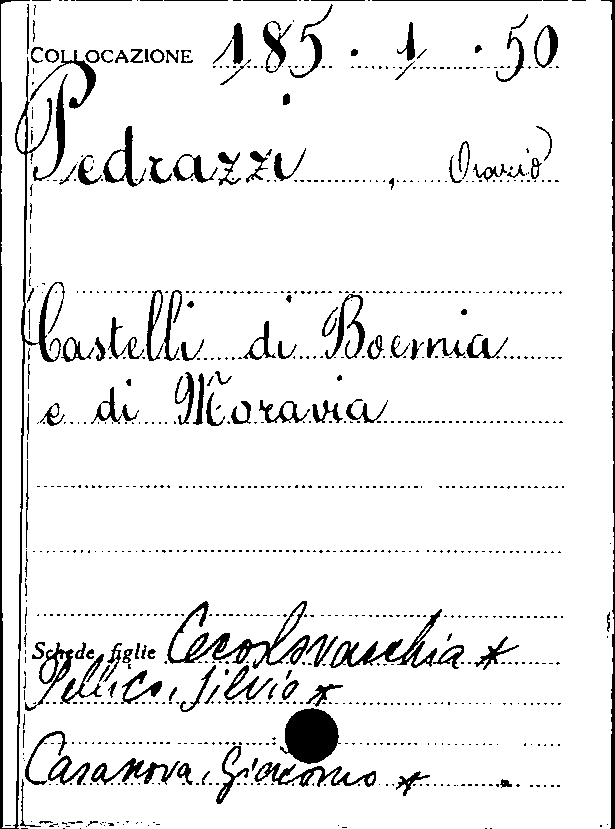 COLLOCAZIONE 185.1.50
Pedrazzi, Orazio
Castelli di Boemia
e di Moravia
Schede figlie Cecoslovacchia *
Pellico, Silvio *
Casanova, Giacomo *